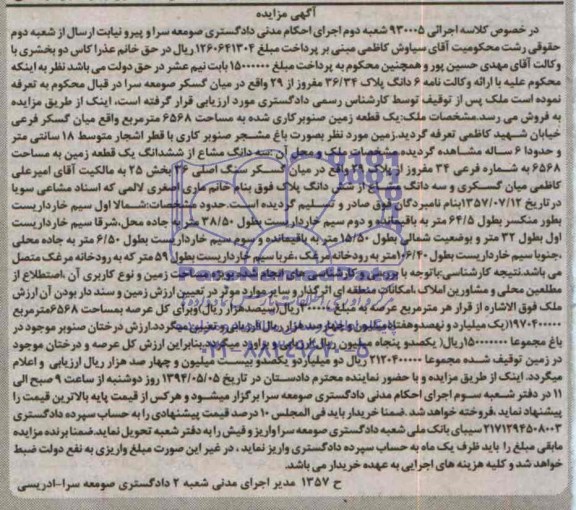 آگهی مزایده
در خصوص کلاسه اجرائی ۹۳۰۰۰۵ شعبه دوم اجرای احکام مدنی دادگستری صومعه سرا و پیرو نیابت ارسال از شعبه دوم
حقوقی رشت محکومیت آقای سیاوش کاظمی مبنی بر پرداخت مبلغ ۱۲۶۰۶۴۱۳۰۴ ریال در حق خانم عذرا کاس دو بخشری با
وکالت آقای مهدی حسین پور و همچنین محکوم به پرداخت مبلغ ۱۵۰۰۰۰۰۰ بابت نیم عشر در حق دولت می باشد نظر به اینکه
محکوم علیه با ارائه وکالت نامه ۶ دانگ پلاک ۳۶/۳۴ مفروز از ۲۹ واقع در میان گسکر صومعه سرا در قبال محکوم به تعرفه
نموده است ملک پس از توقیف توسط کارشناس رسمی دادگستری مورد ارزیابی قرار گرفته است، اینک از طریق مزایده
به فروش می رسد.مشخصات ملک:یک قطعه زمین صنوبر کاری شده به مساحت ۶۵۶۸ مترمربع واقع میان گسکر فرعی
خیابان شهید کاظمی تعرفه گردید.زمین مورد نظر بصورت باغ مشجر صنوبر کاری با قطر اشجار متوسط ۱۸ سانتی متر
و حدودا ۶ ساله مشاهده گردیده مشخصات ملک و محل آن :سه دانگ مشاع از ششدانگ یک قطعه زمین به مساحت
۶۵۶۸ به شماره فرعی ۳۴ مفروز از پلاک ۲۹ واقع در میان گسکر سنگ اصلی ۳۶ بخش ۲۵ به مالکیت آقای امیرعلی
کاظمی میان گسکری و سه دانگ مشاع از شش دانگ پلاک فوق بنام خانم ماری اصغری لالمی که اسناد مشاعی سویا
در تاریخ ۱۳۵۷/۰۷/۱۲ بنام نامبردگان فوق صادر و تسلیم گردیده است.حدود مشخصات:شمالا اول سیم خارداریست
بطور منکسر بطول ۶۴/۵ متر به باقیمانده و دوم سیم خارداریست بطول ۳۸/۵۰ متر به جاده محل،شرقا سیم خارداریست
اول بطول ۳۲ متر و بوضعیت شمالی بطول ۱۵/۵۰ متر به باقیمانده و سوم سیم خارداریست بطول ۶/۵۰ متر به جاده محلی
،جنوبا سیم خارداریست بطول ۱۰۶/۴۰متر به رودخانه مرغک ،غربا سیم خارداریست بطول ۵۹ متر که به رودخانه مرغک متصل
می باشد.نتیجه کارشناسی:باتوجه با بررسی و کارشناسی های انجام شده بویژه مساحت زمین و نوع کاربری آن ،استطلاع از
مطلعین محلی و مشاورین املاک ،امکانات منطقه ای اثرگذار و سایر موارد موثر در تعیین ارزش زمین و سند دار بودن آن ارزش
ملک فوق الاشاره از قرار هر مترمربع عرصه به مبلغ ریال(سیصدهزار ریال)وبرای کل عرصه بمساحت ۶۵۶۸مترمربع
۱۹۷۰۴۰۰۰۰۰(یک میلیارد و نهصدوهفتادمیلیون و چهارصد هزار ریال)ارزیابی و تعیین میگردد.ارزش درختان صنوبر موجود در
باغ مجموعا ۱۵۰۰۰۰۰۰۰ریال( یکصدو پنجاه میلیون ریال)ارزیابی و برآورد میگردد.بنابراین ارزش کل عرصه و درختان موجود
در زمین توقیف شده مجموعا ۲۱۲۰۴۰۰۰۰۰ ریال دو میلیاردو یکصدو بیست میلیون و چهار صد هزار ریال ارزیابی و اعلام
میگردد. اینک از طریق مزایده و با حضور نماینده محترم دادستان در تاریخ ۱۳۹۴/۰۵/۰۵ روز دوشنبه از ساعت ۹ صبح الی
۱۱ در دفتر شعبه سوم اجرای احکام مدنی دادگستری صومعه سرا برگزار میشود و هرکس از قیمت پایه بالاترین قیمت را
پیشنهاد نماید .فروخته خواهد شد .ضمنا خریدار باید فی المجلس ۱۰ درصد قیمت پیشنهادی را به حساب سپرده دادگستری
۲۱۷۱۲۹۴۵۰۸۰۰۳ سیبای بانک ملی شعبه دادگستری صومعه سرا واریز و فیش را به دفتر شعبه تحویل نماید.ضمنا برنده مزایده
مابقی مبلغ را باید ظرف یک ماه به حساب سپرده دادگستری واریز نماید ، در غیر این صورت مبلغ واریزی به نفع دولت ضبط
خواهد شد و کلیه هزینه های اجرایی به عهده خریدار می باشد.
ح ۱۳۵۷ مدیر اجرای مدنی شعبه ۲ دادگستری صومعه سرا-ادریسی